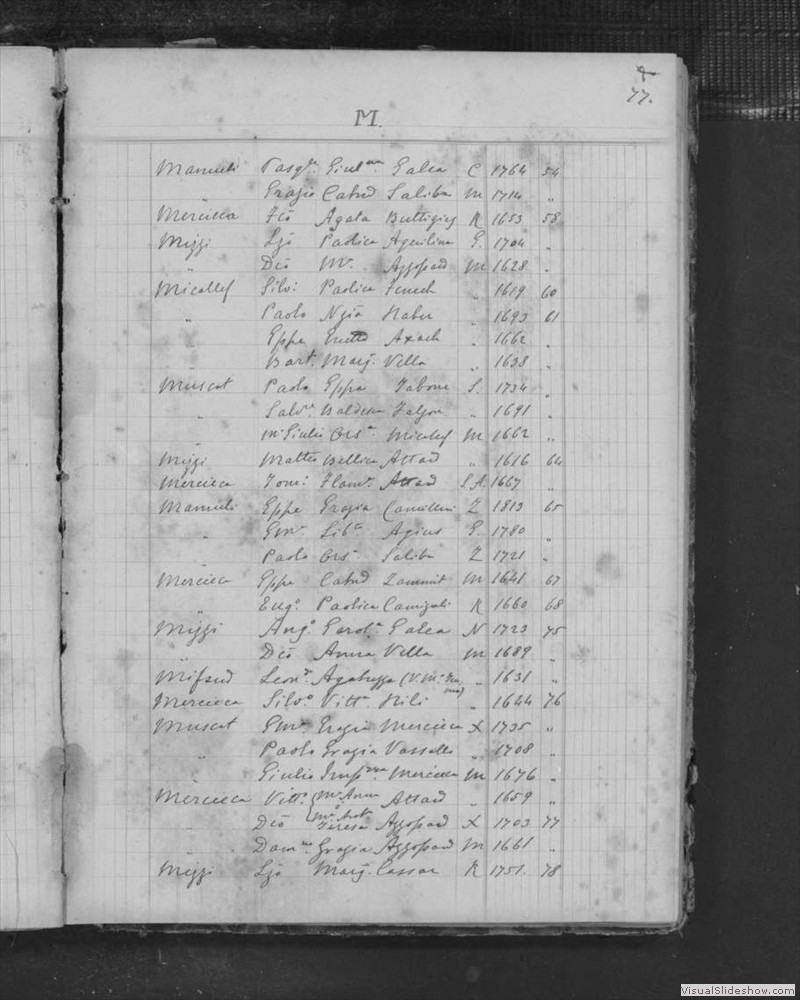 77.
M.
Mamuli Pasq.le Giul.na Galea C 1764 54
" Grazia Catrd Saliba M 1714 "
Mercieca Agata Buttigieg R 1653 58
Mizzi Paolica Aquilina G. 1704 "
" Azzopard M 1628 "
Micallef Silv: Paolica Fenech " 1619 60
" Paolo Ngia Haber " 1693 61
Eppe Axach " 1662 "
Bart. Marg. Vella " 1638 "
Muscat Paolo Eppa Tabone S. 1734 "
" Salv.e Baldesca Falzon " 1691 "
" M.o Giulio Ors.a Micallef M 1662 "
Mizzi Matteo Bellica Attard " 1616 64
Mercieca Tom: Flam.a Attard S.A. 1667 "
Mamuli Eppe Grazia Camilleri Z 1813 65
" Lib.a Agius G. 1780 "
" Paolo Ors.a Saliba Z 1721 "
Mercieca Eppe Catrd Zammit M 1641 67
" Eug.o Paolica R 1660 68
Mizzi Ang.o Galea N 1723 75
" Anna Vella M 1689 "
Mifsud Leon.do " 1631 "
Mercieca Silv.o Vitt.a Hili " 1644 76
Muscat Grazia Mercieca X 1735 "
" Paolo Grazia Vassallo " 1708 "
" Giulio Mercieca M 1676 "
Mercieca Vitt.o M.a Anna Attard " 1659 "
" Teresa Azzopard X 1703 77
" Grazia Azzopard M 1661 "
Mizzi Marg. Cassar R 1751. 78
VisualSlideshow.com